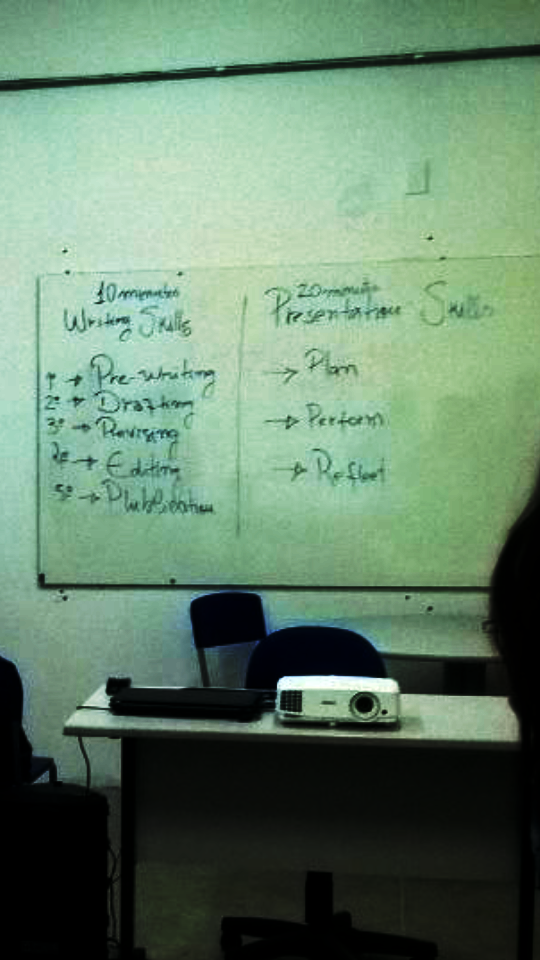 10 minutes
Writing Skills
1º → Pre-writing
2º → Drafting
3º → Revising
→ Editing
5º → Plublication
20 minuts
Presentation Skills
→ Plan
→ Perform
→ Reflect